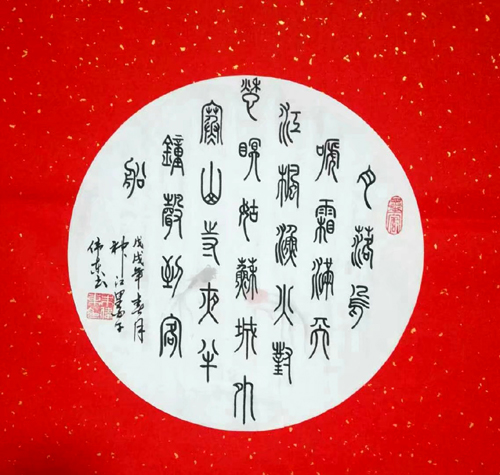 月落烏
啼霜滿天
江楓漁火對
愁眠姑蘇城外
寒山寺夜半
鐘聲到客
船
戊戌年春月
江
伟东书